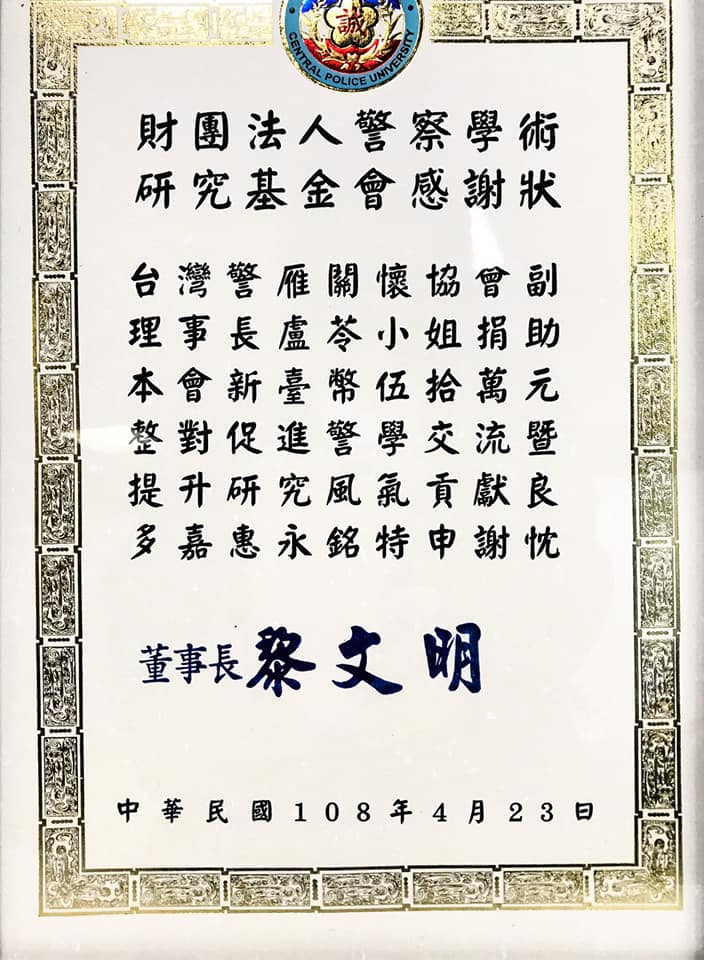 誠
CENTRAL POLICE UNIVERSITY
財團法人警察學術
研究基金會感謝狀
台灣警雁關懷協會副
理事長盧苓小姐捐助
本會新臺幣伍拾萬元
整對促進警學交流暨
提升研究風氣貢獻良
多嘉惠永銘特申謝忱
董事長黎文明
中華民國108年4月23日